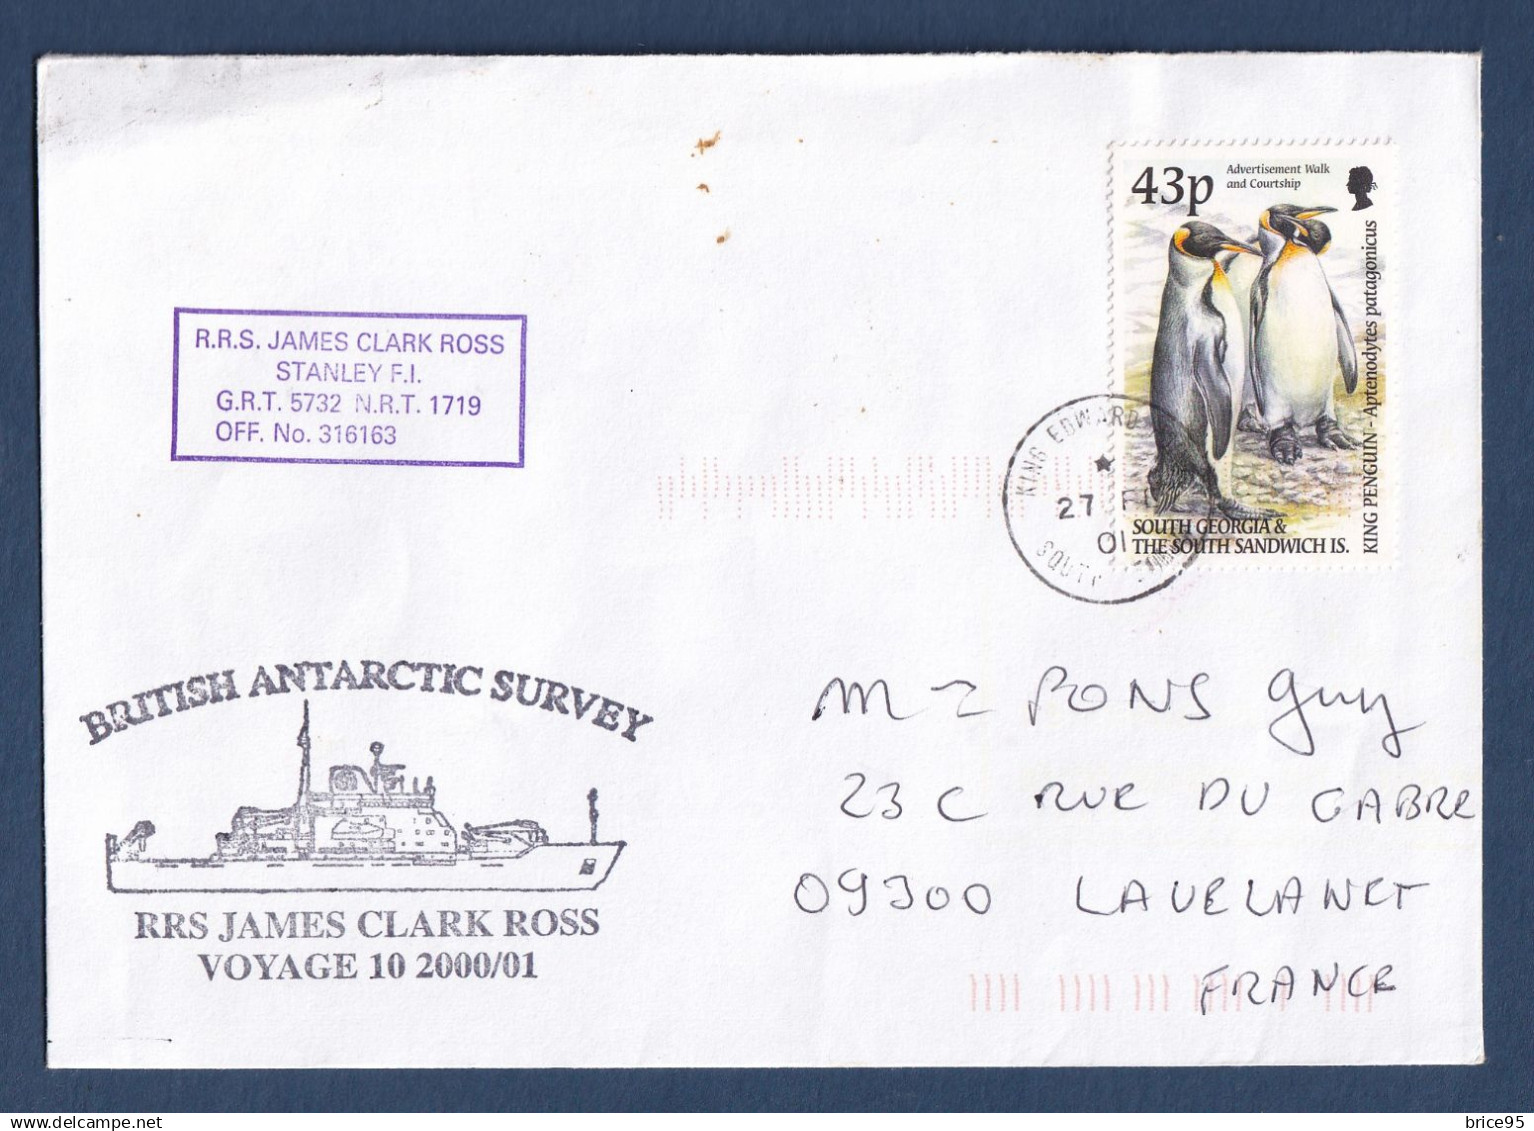 43p
Advertisement Walk
and Courtship
KING PENGUIN - Aptenodytes patagonicus
SOUTH GEORGIA &
THE SOUTH SANDWICH IS.
KING EDWARD
27
01
R.R.S. JAMES CLARK ROSS
STANLEY F.I.
G.R.T. 5732 N.R.T. 1719
OFF. No. 316163
BRITISH ANTARCTIC SURVEY
RRS JAMES CLARK ROSS
VOYAGE 10 2000/01
PONS Guy
23 C RUE DU GABRE
09300 LAVELANET
FRANCE
brice95